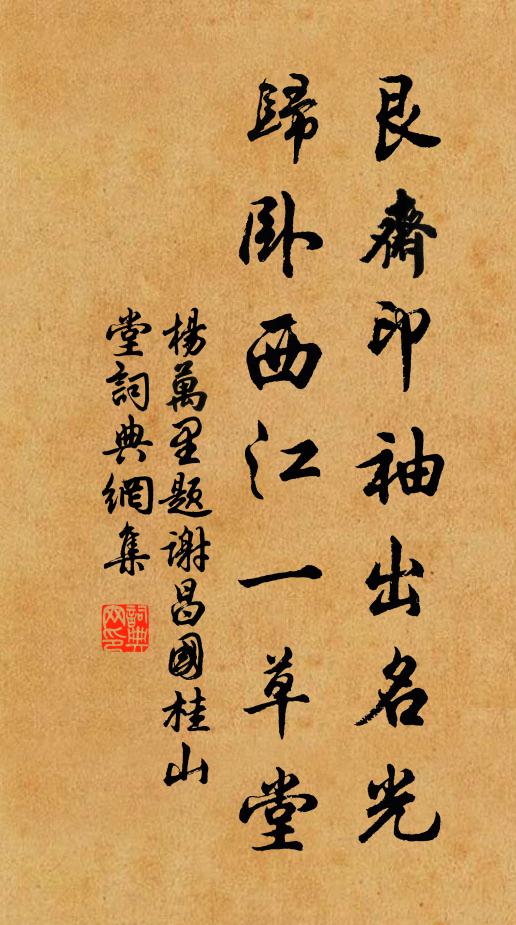 艮齋印袖出名光
歸卧西江一草堂
楊萬里題謝昌國桂山
堂詞典網集
詞典
网印